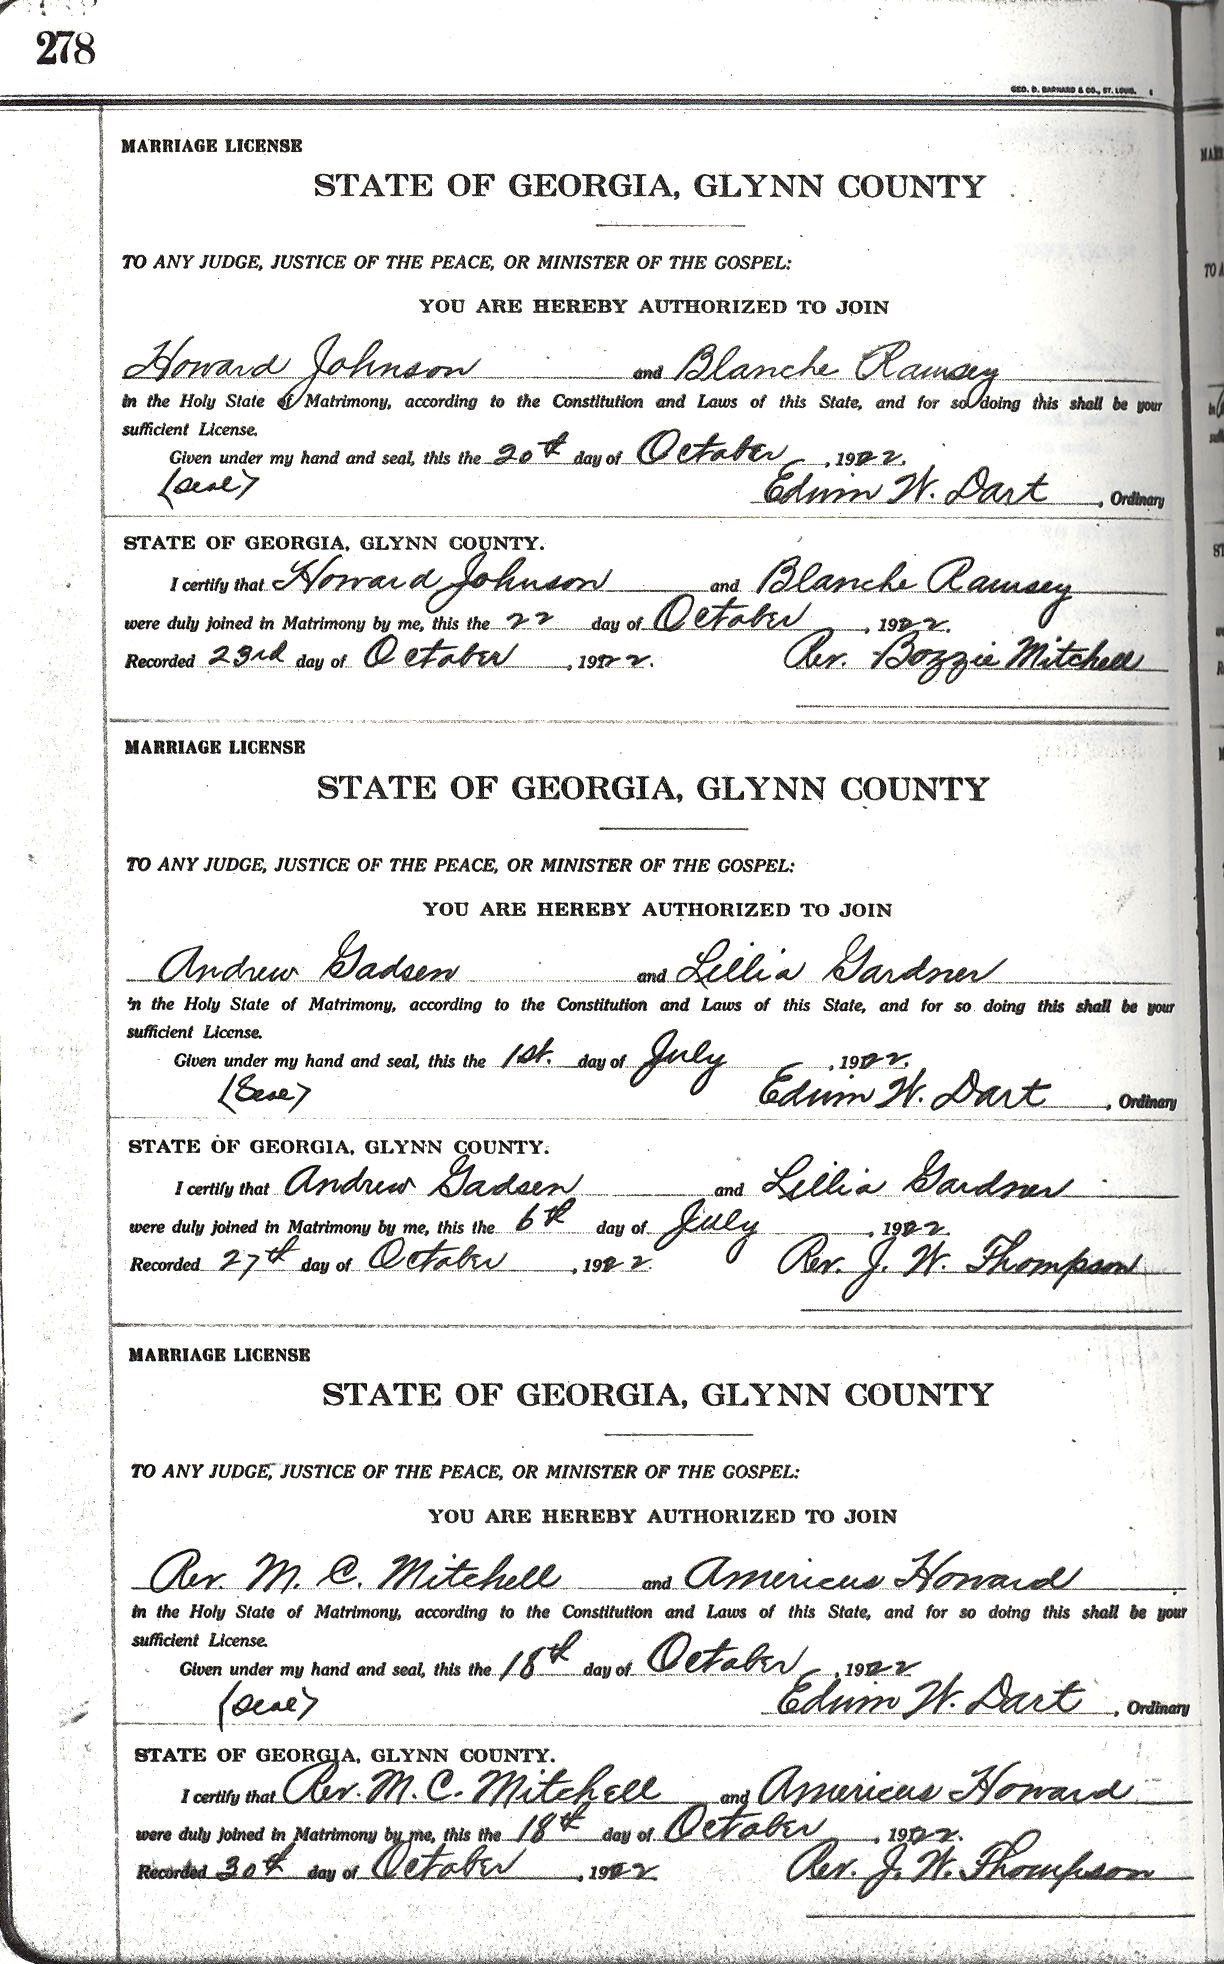 278
GEO. D. BARNARD & CO., ST. LOUIS.
MARRIAGE LICENSE
STATE OF GEORGIA, GLYNN COUNTY
TO ANY JUDGE, JUSTICE OF THE PEACE, OR MINISTER OF THE GOSPEL:
YOU ARE HEREBY AUTHORIZED TO JOIN
Howard Johnson and Blanche Ramsey
in the Holy State of Matrimony, according to the Constitution and Laws of this State, and for so doing this shall be your
sufficient License.
Given under my hand and seal, this the 20th day of October, 1922.
(Seal) Edwin W. Dart, Ordinary
STATE OF GEORGIA, GLYNN COUNTY.
I certify that Howard Johnson and Blanche Ramsey
were duly joined in Matrimony by me, this the 22 day of October, 1922.
Recorded 23rd day of October, 1922. Rev. Bozzie Mitchell
MARRIAGE LICENSE
STATE OF GEORGIA, GLYNN COUNTY
TO ANY JUDGE, JUSTICE OF THE PEACE, OR MINISTER OF THE GOSPEL:
YOU ARE HEREBY AUTHORIZED TO JOIN
Andrew Gadsen and Lillia Gardner
in the Holy State of Matrimony, according to the Constitution and Laws of this State, and for so doing this shall be your
sufficient License.
Given under my hand and seal, this the 1st. day of July, 1922.
(Seal) Edwin W. Dart, Ordinary
STATE OF GEORGIA, GLYNN COUNTY.
I certify that Andrew Gadsen and Lillia Gardner
were duly joined in Matrimony by me, this the 6th day of July, 1922.
Recorded 27th day of October, 1922. Rev. J. W. Thompson
MARRIAGE LICENSE
STATE OF GEORGIA, GLYNN COUNTY
TO ANY JUDGE, JUSTICE OF THE PEACE, OR MINISTER OF THE GOSPEL:
YOU ARE HEREBY AUTHORIZED TO JOIN
Rev. M. C. Mitchell and Americus Howard
in the Holy State of Matrimony, according to the Constitution and Laws of this State, and for so doing this shall be your
sufficient License.
Given under my hand and seal, this the 18th day of October, 1922
(Seal) Edwin W. Dart, Ordinary
STATE OF GEORGIA, GLYNN COUNTY.
I certify that Rev. M. C. Mitchell and Americus Howard
were duly joined in Matrimony by me, this the 18th day of October, 1922.
Recorded 30th day of October, 1922 Rev. J. W. Thompson